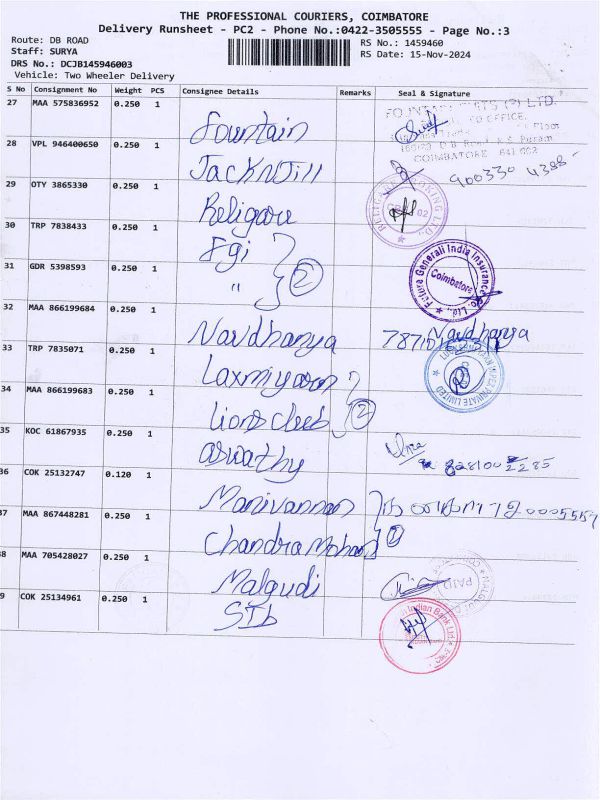 THE PROFESSIONAL COURIERS, COIMBATORE
Delivery Runsheet - PC2 - Phone No.:0422-3505555 - Page No.:3
Route: DB ROAD
RS No.: 1459460
Staff: SURYA
RS Date: 15-Nov-2024
DRS No.: DCJB145946003
Vehicle: Two Wheeler Delivery
S No Consignment No Weight PCS Consignee Details Remarks Seal & Signature
27 MAA 575836952 0.250 1 Fountain
COIMBATORE 641 002
28 VPL 946400650 0.250 1 JackNJill
29 OTY 3865330 0.250 1 Religare
30 TRP 7838433 0.250 1 Fgi
31 GDR 5398593 0.250 1 " 2
Future Generali India Insurance Co. Ltd.,
Coimbatore
32 MAA 866199684 0.250 1 Navdhanya Navdhanya
33 TRP 7835071 0.250 1 Laxmi
PRIVATE LIMITED
34 MAA 866199683 0.250 1 Lions Club 2
35 KOC 61867935 0.250 1 aswathy
36 COK 25132747 0.120 1 Manivannan
37 MAA 867448281 0.250 1 Chandra Mohan
38 MAA 705428027 0.250 1 Malgudi
PAID
39 COK 25134961 0.250 1 SIb
Indian Bank Ltd.